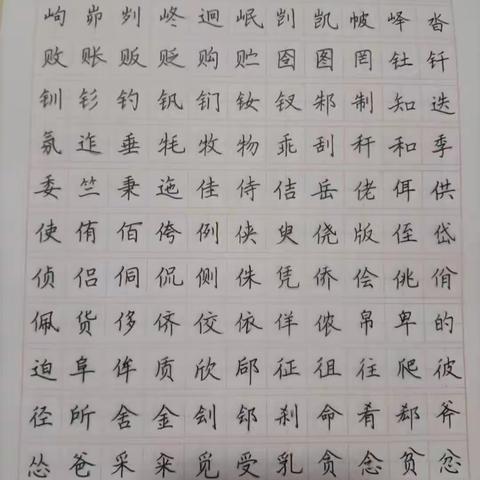 岣 峁 刿 峂 迥 岷 剀 凯 帔 峄 沓
败 账 贩 贬 购 贮 囹 图 罔 钍 钎
钏 钐 钓 钒 钔 钕 钗 邾 制 知 迭
氛 迮 垂 牦 牧 物 乖 刮 秆 和 季
委 竺 秉 迤 佳 侍 佶 岳 佬 佴 供
使 侑 佰 侉 例 侠 臾 侥 版 侄 岱
侦 侣 侗 侃 侧 侏 凭 侨 侩 佻 佾
佩 货 侈 侪 佼 依 佯 侬 帛 卑 的
迫 阜 侔 质 欣 郈 征 徂 往 爬 彼
径 所 舍 金 刽 郐 刹 命 肴 郄 斧
怂 爸 采 籴 觅 受 乳 贪 念 贫 忿